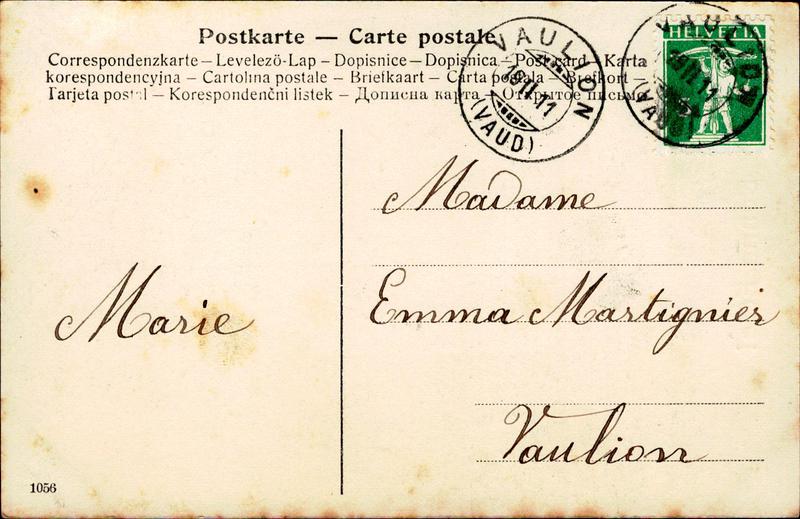 Postkarte — Carte postale
Correspondenzkarte – Levelező-Lap – Dopisnice – Dopisnica – Post card – Karta
korespondencyjna – Cartolina postale – Briefkaart – Carta postala – Brefkort –
Tarjeta postal – Korespondenční listek – Дописна карта – Открытое письмо
VAULION
19.II.11
(VAUD)
HELVETIA
VAULION
(VAUD)
Madame
Emma Martignier
Vaulion
Marie
1056